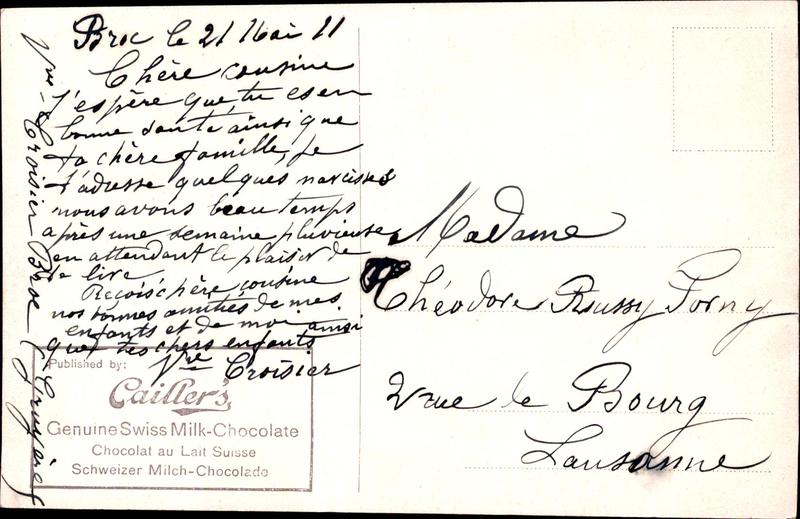 Broc le 21 Mai 11
Chère cousine
J'espère que tu es en
bonne santé ainsi que
ta chère famille, je
t'adresse quelques narcisses
nous avons beau temps
après une semaine pluvieuse
en attendant le plaisir de
te lire
Reçois chère cousine
nos bonnes amitiés de mes
enfants et de moi ainsi
que tes chers enfants
Vve Croisier
Vve Croisier Broc (Gruyères
Published by:
Cailler's
Genuine Swiss Milk-Chocolate
Chocolat au Lait Suisse
Schweizer Milch-Chocolade
Madame
Théodore Russy Forny
2 rue le Bourg
Lausanne